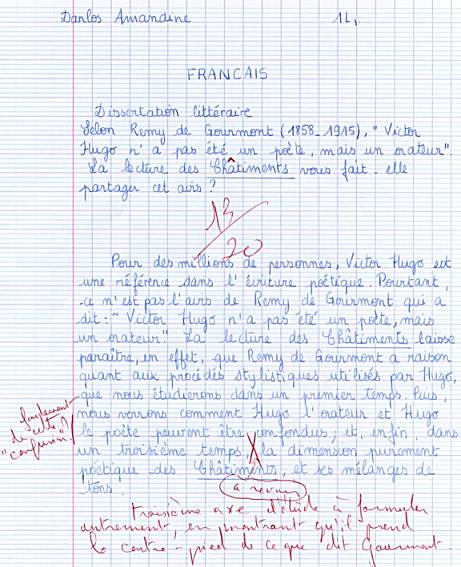 Danlos Amandine 1L1
FRANCAIS
Dissertation littéraire
Selon Remy de Gourmont (1858-1915), "Victor
Hugo n'a pas été un poète, mais un orateur".
La lecture des Châtiments vous fait-elle
partager cet avis ?
13
20
Pour des millions de personnes, Victor Hugo est
une référence dans l'écriture poétique. Pourtant,
ce n'est pas l'avis de Remy de Gourmont qui a
dit : "Victor Hugo n'a pas été un poète, mais
un orateur." La lecture des Châtiments laisse
paraître, en effet, que Remy de Gourmont a raison
quant aux procédés stylistiques utilisés par Hugo,
que nous étudierons dans un premier temps. Puis,
nous verrons comment Hugo l'orateur et Hugo
le poète peuvent être confondus, et, enfin, dans
un troisième temps, la dimension purement
poétique des Châtiments, et ses mélanges de
tons.
fondement
de cette
"confusion"?
à revoir
troisième axe d'étude à formuler
autrement, en montrant qu'il prend
le contre-pied de ce que dit Gourmont.